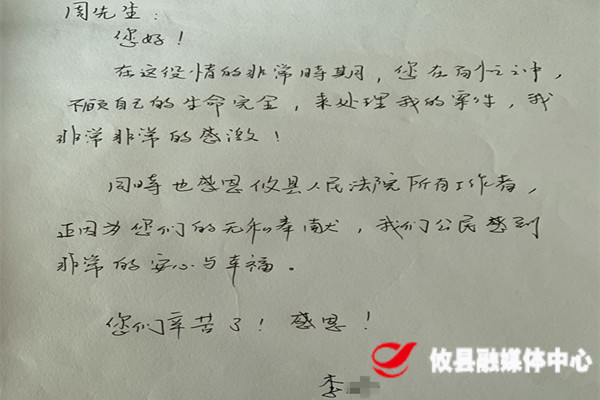 周先生:
您好!
在这役情的非常時期,您在百忙之中,
不顾自己的生命完全,来处理我的案件,我
非常非常的感激!
同時也感恩攸县人民法院所有工作者,
正因为您们的无私奉献,我们公民感到
非常的安心与幸福。
您们辛苦了!感恩!
李
攸县融媒体中心